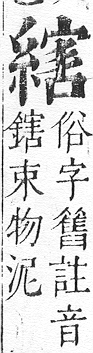 縖
俗字舊註音
鎋束物泥